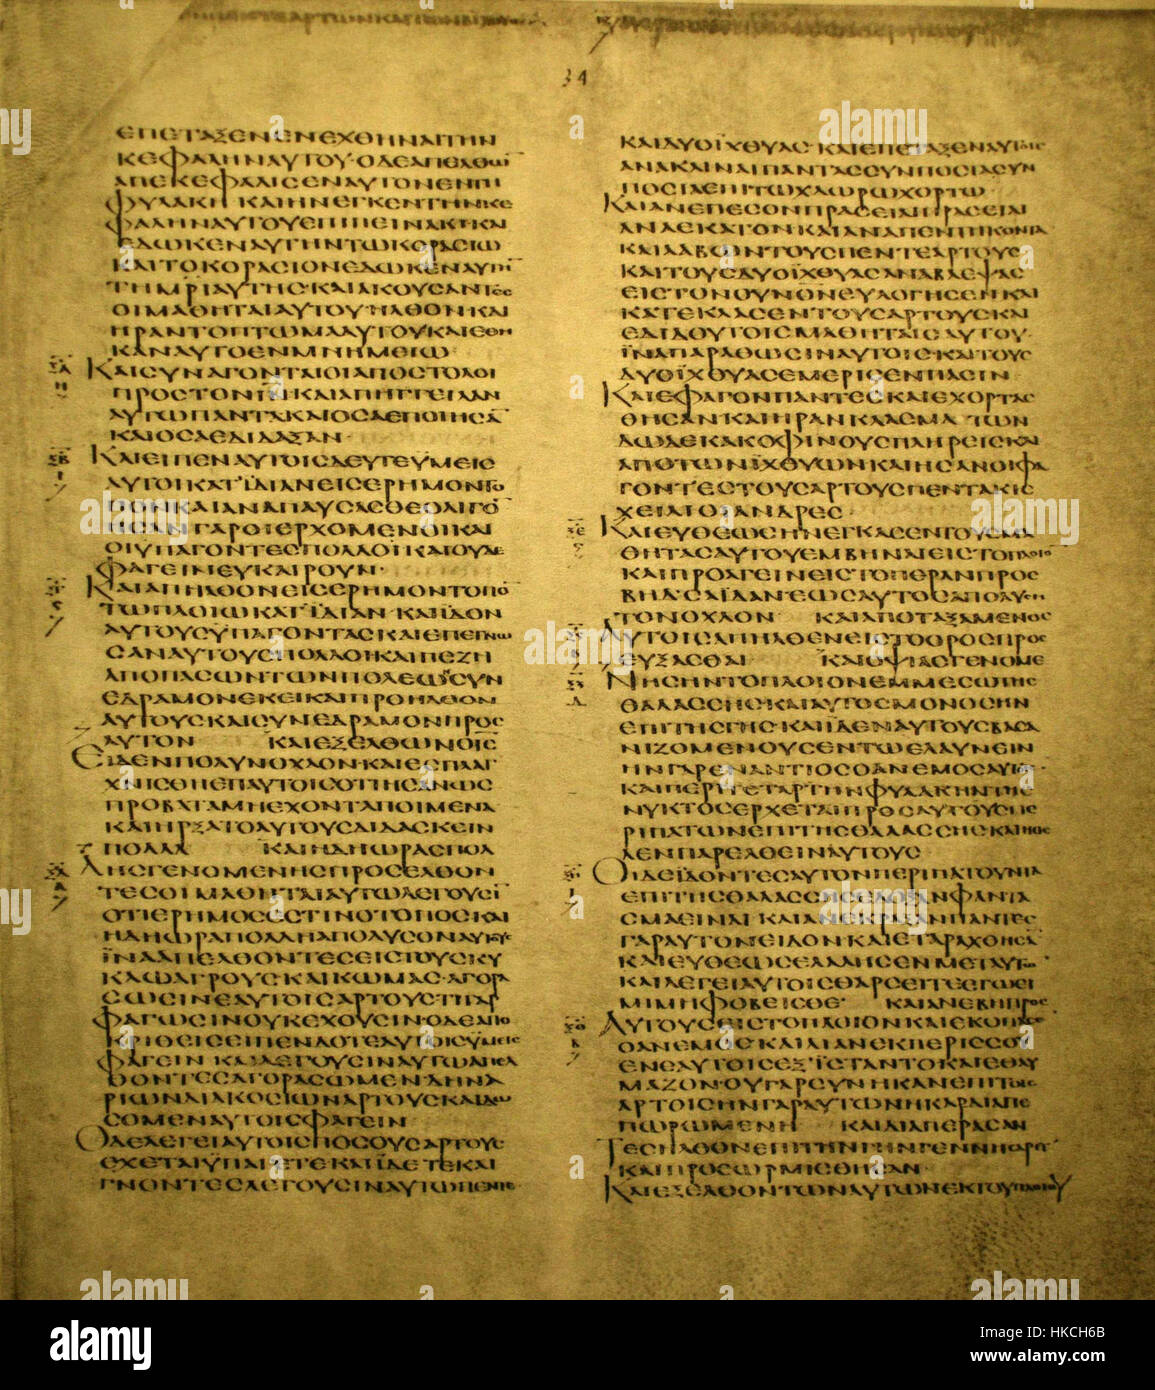 34
ΕΠΕΤΑΞΕΝΕΝΕΧΘΗΝΑΙΤΗΝ
ΚΕΦΑΛΗΝΑΥΤΟΥ·ΟΔΕΑΠΕΛΘΩ̅
ΑΠΕΚΕΦΑΛΙϹΕΝΑΥΤΟΝΕΝΤΗ
ΦΥΛΑΚΗΚΑΙΗΝΕΓΚΕΝΤΗΝΚΕ
ΦΑΛΗΝΑΥΤΟΥΕΠΙΠΕΙΝΑΚΙΚΑΙ
ΕΔΩΚΕΝΑΥΤΗΝΤΩΚΟΡΑϹΙΩ
ΚΑΙΤΟΚΟΡΑϹΙΟΝΕΔΩΚΕΝΑΥΤΗ̅
ΤΗΜΡΙΑΥΤΗϹ·ΚΑΙΑΚΟΥϹΑΝΤΕϹ
ΟΙΜΑΘΗΤΑΙΑΥΤΟΥ·ΗΛΘΟΝΚΑΙ
ΗΡΑΝΤΟΠΤΩΜΑΑΥΤΟΥΚΑΙΕΘΗ
ΚΑΝΑΥΤΟΕΝΜΝΗΜΕΙΩ·
ΚΑΙϹΥΝΑΓΟΝΤΑΙΟΙΑΠΟϹΤΟΛΟΙ
ΠΡΟϹΤΟΝΙ̅Ν̅ΚΑΙΑΠΗΓΓΕΙΛΑΝ
ΑΥΤΩΠΑΝΤΑΚΑΙΟϹΑΕΠΟΙΗϹΑ̅
ΚΑΙΟϹΑΕΔΙΔΑΞΑΝ·
ΚΑΙΕΙΠΕΝΑΥΤΟΙϹΔΕΥΤΕΥΜΕΙϹ
ΑΥΤΟΙΚΑΤΪΔΙΑΝΕΙϹΕΡΗΜΟΝΤΟ
ΠΟΝΚΑΙΑΝΑΠΑΥϹΑϹΘΕΟΛΙΓΟ̅
ΗϹΑΝΓΑΡΟΙΕΡΧΟΜΕΝΟΙΚΑΙ
ΟΙΥΠΑΓΟΝΤΕϹΠΟΛΛΟΙΚΑΙΟΥΔΕ
ΦΑΓΕΙΝΕΥΚΑΙΡΟΥΝ·
ΚΑΙΑΠΗΛΘΟΝΕΙϹΕΡΗΜΟΝΤΟΠΟ̅
ΤΩΠΛΟΙΩΚΑΤΪΔΙΑΝ·ΚΑΙΪΔΟΝ
ΑΥΤΟΥϹΥΠΑΓΟΝΤΑϹΚΑΙΕΠΕΓΝΩ
ϹΑΝΑΥΤΟΥϹΠΟΛΛΟΙ·ΚΑΙΠΕΖΗ
ΑΠΟΠΑϹΩΝΤΩΝΠΟΛΕΩΝϹΥΝ
ΕΔΡΑΜΟΝΕΚΕΙΚΑΙΠΡΟΗΛΘΟΝ
ΑΥΤΟΥϹΚΑΙϹΥΝΕΔΡΑΜΟΝΠΡΟϹ
ΑΥΤΟΝ ΚΑΙΕΞΕΛΘΩΝΟΙ̅Ϲ̅
ΕΙΔΕΝΠΟΛΥΝΟΧΛΟΝ·ΚΑΙΕϹΠΛΑΓ
ΧΝΙϹΘΗΕΠΑΥΤΟΙϹΟΤΙΗϹΑΝΩϹ
ΠΡΟΒΑΤΑΜΗΕΧΟΝΤΑΠΟΙΜΕΝΑ
ΚΑΙΗΡΞΑΤΟΑΥΤΟΥϹΔΙΔΑϹΚΕΙΝ
ΠΟΛΛΑ ΚΑΙΗΔΗΩΡΑϹΠΟΛ
ΛΗϹΓΕΝΟΜΕΝΗϹΠΡΟϹΕΛΘΟΝ
ΤΕϹΟΙΜΑΘΗΤΑΙΑΥΤΩΛΕΓΟΥϹΙ̅
ΟΤΙΕΡΗΜΟϹΕϹΤΙΝΟΤΟΠΟϹΚΑΙ
ΗΔΗΩΡΑΠΟΛΛΗΑΠΟΛΥϹΟΝΑΥΤΟΥϹ
ΪΝΑΑΠΕΛΘΟΝΤΕϹΕΙϹΤΟΥϹΚΥ
ΚΛΩΑΓΡΟΥϹΚΑΙΚΩΜΑϹ·ΑΓΟΡΑ
ϹΩϹΙΝΕΑΥΤΟΙϹΑΡΤΟΥϹΤΙΓΑΡ
ΦΑΓΩϹΙΝΟΥΚΕΧΟΥϹΙΝ·ΟΔΕΑΠΟ
ΚΡΙΘΕΙϹΕΙΠΕΝΔΟΤΕΑΥΤΟΙϹΥΜΕΙϹ
ΦΑΓΕΙΝ·ΚΑΙΛΕΓΟΥϹΙΝΑΥΤΩΑΠΕΛ
ΘΟΝΤΕϹΑΓΟΡΑϹΩΜΕΝΔΗΝΑ
ΡΙΩΝΔΙΑΚΟϹΙΩΝΑΡΤΟΥϹΚΑΙΔΩ
ϹΟΜΕΝΑΥΤΟΙϹΦΑΓΕΙΝ
ΟΔΕΛΕΓΕΙΑΥΤΟΙϹΠΟϹΟΥϹΑΡΤΟΥϹ
ΕΧΕΤΑΙΫΠΑΓΕΤΕΚΑΙΪΔΕΤΕΚΑΙ
ΓΝΟΝΤΕϹΛΕΓΟΥϹΙΝΑΥΤΩΠΕΝΤΕ
ΚΑΙΔΥΟΪΧΘΥΑϹ·ΚΑΙΕΠΕΤΑΞΕΝΑΥΤΟΙϹ
ΑΝΑΚΛΙΝΑΙΠΑΝΤΑϹϹΥΝΠΟϹΙΑϹΥΝ
ΠΟϹΙΑΕΠΙΤΩΧΛΩΡΩΧΟΡΤΩ·
ΚΑΙΑΝΕΠΕϹΟΝΠΡΑϹΕΙΑΙΠΡΑϹΕΙΑΙ
ΑΝΑΕΚΑΤΟΝΚΑΙΑΝΑΠΕΝΤΗΚΟΝΤΑ
ΚΑΙΛΑΒΩΝΤΟΥϹΠΕΝΤΕΑΡΤΟΥϹ
ΚΑΙΤΟΥϹΔΥΟΪΧΘΥΑϹΑΝΑΒΛΕΨΑϹ
ΕΙϹΤΟΝΟΥΝΟΝΕΥΛΟΓΗϹΕΝΚΑΙ
ΚΑΤΕΚΛΑϹΕΝΤΟΥϹΑΡΤΟΥϹΚΑΙ
ΕΔΙΔΟΥΤΟΙϹΜΑΘΗΤΑΙϹΑΥΤΟΥ·
ΪΝΑΠΑΡΑΘΩϹΙΝΑΥΤΟΙϹ·ΚΑΙΤΟΥϹ
ΔΥΟΪΧΘΥΑϹΕΜΕΡΙϹΕΝΠΑϹΙΝ
ΚΑΙΕΦΑΓΟΝΠΑΝΤΕϹΚΑΙΕΧΟΡΤΑϹ
ΘΗϹΑΝΚΑΙΗΡΑΝΚΛΑϹΜΑΤΩΝ
ΔΩΔΕΚΑΚΟΦΙΝΟΥϹΠΛΗΡΕΙϹΚΑΙ
ΑΠΟΤΩΝΪΧΘΥΩΝΚΑΙΗϹΑΝΟΙΦΑ
ΓΟΝΤΕϹΤΟΥϹΑΡΤΟΥϹΠΕΝΤΑΚΙϹ
ΧΕΙΛΙΟΙΑΝΔΡΕϹ·
ΚΑΙΕΥΘΕΩϹΗΝΕΓΚΑϹΕΝΤΟΥϹΜΑ
ΘΗΤΑϹΑΥΤΟΥΕΜΒΗΝΑΙΕΙϹΤΟΠΛΟΙΟ̅
ΚΑΙΠΡΟΑΓΕΙΝΕΙϹΤΟΠΕΡΑΝΠΡΟϹ
ΒΗΔϹΑΪΔΑΝΕΩϹΑΥΤΟϹΑΠΟΛΥϹΗ
ΤΟΝΟΧΛΟΝ ΚΑΙΑΠΟΤΑΞΑΜΕΝΟϹ
ΑΥΤΟΙϹΑΠΗΛΘΕΝΕΙϹΤΟΟΡΟϹΠΡΟϹ
ΕΥΞΑϹΘΑΙ ΚΑΙΟΨΙΑϹΓΕΝΟΜΕ
ΝΗϹΗΝΤΟΠΛΟΙΟΝΕΜΜΕϹΩΤΗϹ
ΘΑΛΑϹϹΗϹ·ΚΑΙΑΥΤΟϹΜΟΝΟϹΗΝ
ΕΠΙΤΗϹΓΗϹ·ΚΑΙΪΔΕΝΑΥΤΟΥϹΒΑϹΑ
ΝΙΖΟΜΕΝΟΥϹΕΝΤΩΕΛΑΥΝΕΙΝ
ΗΝΓΑΡΕΝΑΝΤΙΟϹΟΑΝΕΜΟϹΑΥΤΟΙϹ·
ΚΑΙΠΕΡΙΤΕΤΑΡΤΗΝΦΥΛΑΚΗΝΤΗϹ
ΝΥΚΤΟϹΕΡΧΕΤΑΙΠΡΟϹΑΥΤΟΥϹΠΕ
ΡΙΠΑΤΩΝΕΠΙΤΗϹΘΑΛΑϹϹΗϹΚΑΙΗΘΕ
ΛΕΝΠΑΡΕΛΘΕΙΝΑΥΤΟΥϹ
ΟΙΔΕΪΔΟΝΤΕϹΑΥΤΟΝΠΕΡΙΠΑΤΟΥΝΤΑ
ΕΠΙΤΗϹΘΑΛΑϹϹΗϹΕΔΟΞΑΝΦΑΝΤΑ
ϹΜΑΕΙΝΑΙ·ΚΑΙΑΝΕΚΡΑΞΑΝΠΑΝΤΕϹ
ΓΑΡΑΥΤΟΝΕΙΔΟΝΚΑΙΕΤΑΡΑΧΘΗϹΑ̅
ΚΑΙΕΥΘΕΩϹΕΛΑΛΗϹΕΝΜΕΤΑΥΤΩ̅
ΚΑΙΛΕΓΕΙΑΥΤΟΙϹΘΑΡϹΕΙΤΕΕΓΩΕΙ
ΜΙΜΗΦΟΒΕΙϹΘΕ· ΚΑΙΑΝΕΒΗΠΡΟϹ
ΑΥΤΟΥϹΕΙϹΤΟΠΛΟΙΟΝΚΑΙΕΚΟΠΑϹΕ̅
ΟΑΝΕΜΟϹΚΑΙΛΙΑΝΕΚΠΕΡΙϹϹΟΥ
ΕΝΕΑΥΤΟΙϹΕΞΪϹΤΑΝΤΟΚΑΙΕΘΑΥ
ΜΑΖΟΝ·ΟΥΓΑΡϹΥΝΗΚΑΝΕΠΙΤΟΙϹ
ΑΡΤΟΙϹΗΝΓΑΡΑΥΤΩΝΗΚΑΡΔΙΑΠΕ
ΠΩΡΩΜΕΝΗ ΚΑΙΔΙΑΠΕΡΑϹΑΝ
ΤΕϹΗΛΘΟΝΕΠΙΤΗΝΓΗΝΓΕΝΝΗϹΑΡΕΤ
ΚΑΙΠΡΟϹΩΡΜΙϹΘΗϹΑΝ·
ΚΑΙΕΞΕΛΘΟΝΤΩΝΑΥΤΩΝΕΚΤΟΥΠΛΟΙΟΥ
alamy
Image ID: HKCH6B
www.alamy.com